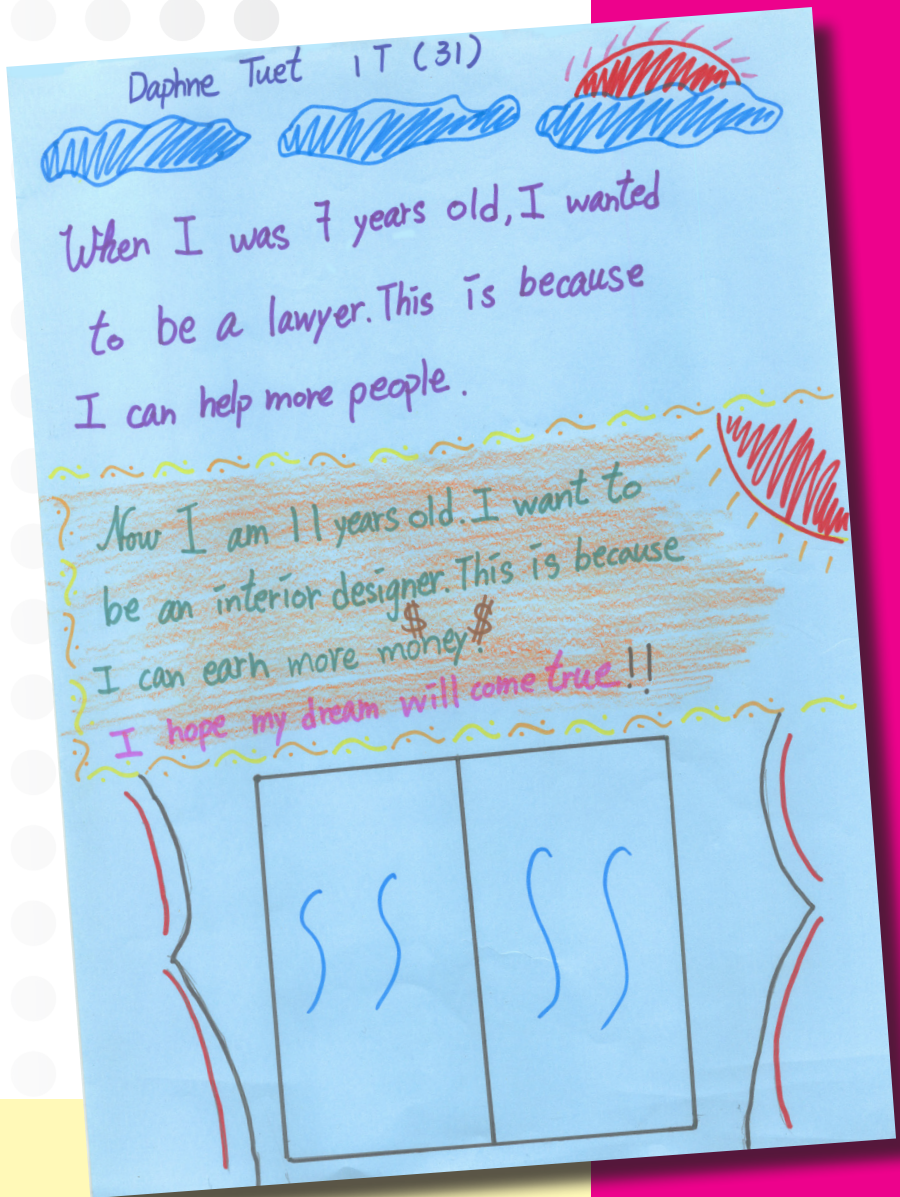 Daphne Tuet 1T (31)
When I was 7 years old, I wanted
to be a lawyer. This is because
I can help more people.
Now I am 11 years old. I want to
be an interior designer. This is because
$ $
I can earn more money.
I hope my dream will come true!!